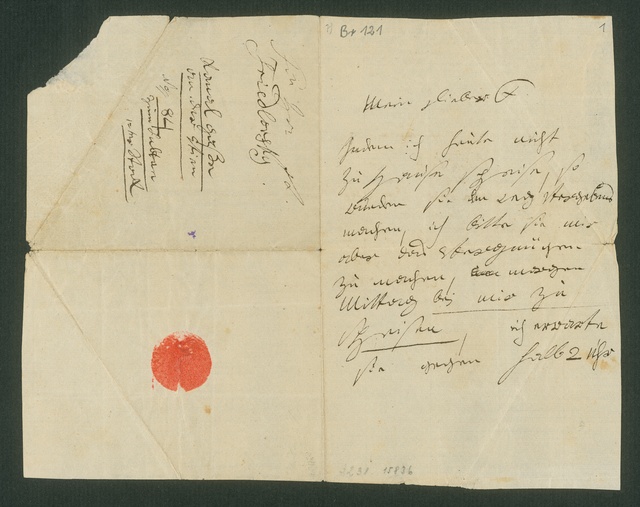 Br 121
1
Mein lieber F
Indem ich heute nicht
zu Hause speise, so
würden sie den weg vergebens
machen, ich bitte sie mir
aber das Vergnügen
zu machen, morgen
Mittag bei mir zu
speisen, ich erwarte
sie gegen halb 2 uhr
Für Hr.
Friedlowsky
No 84
15836